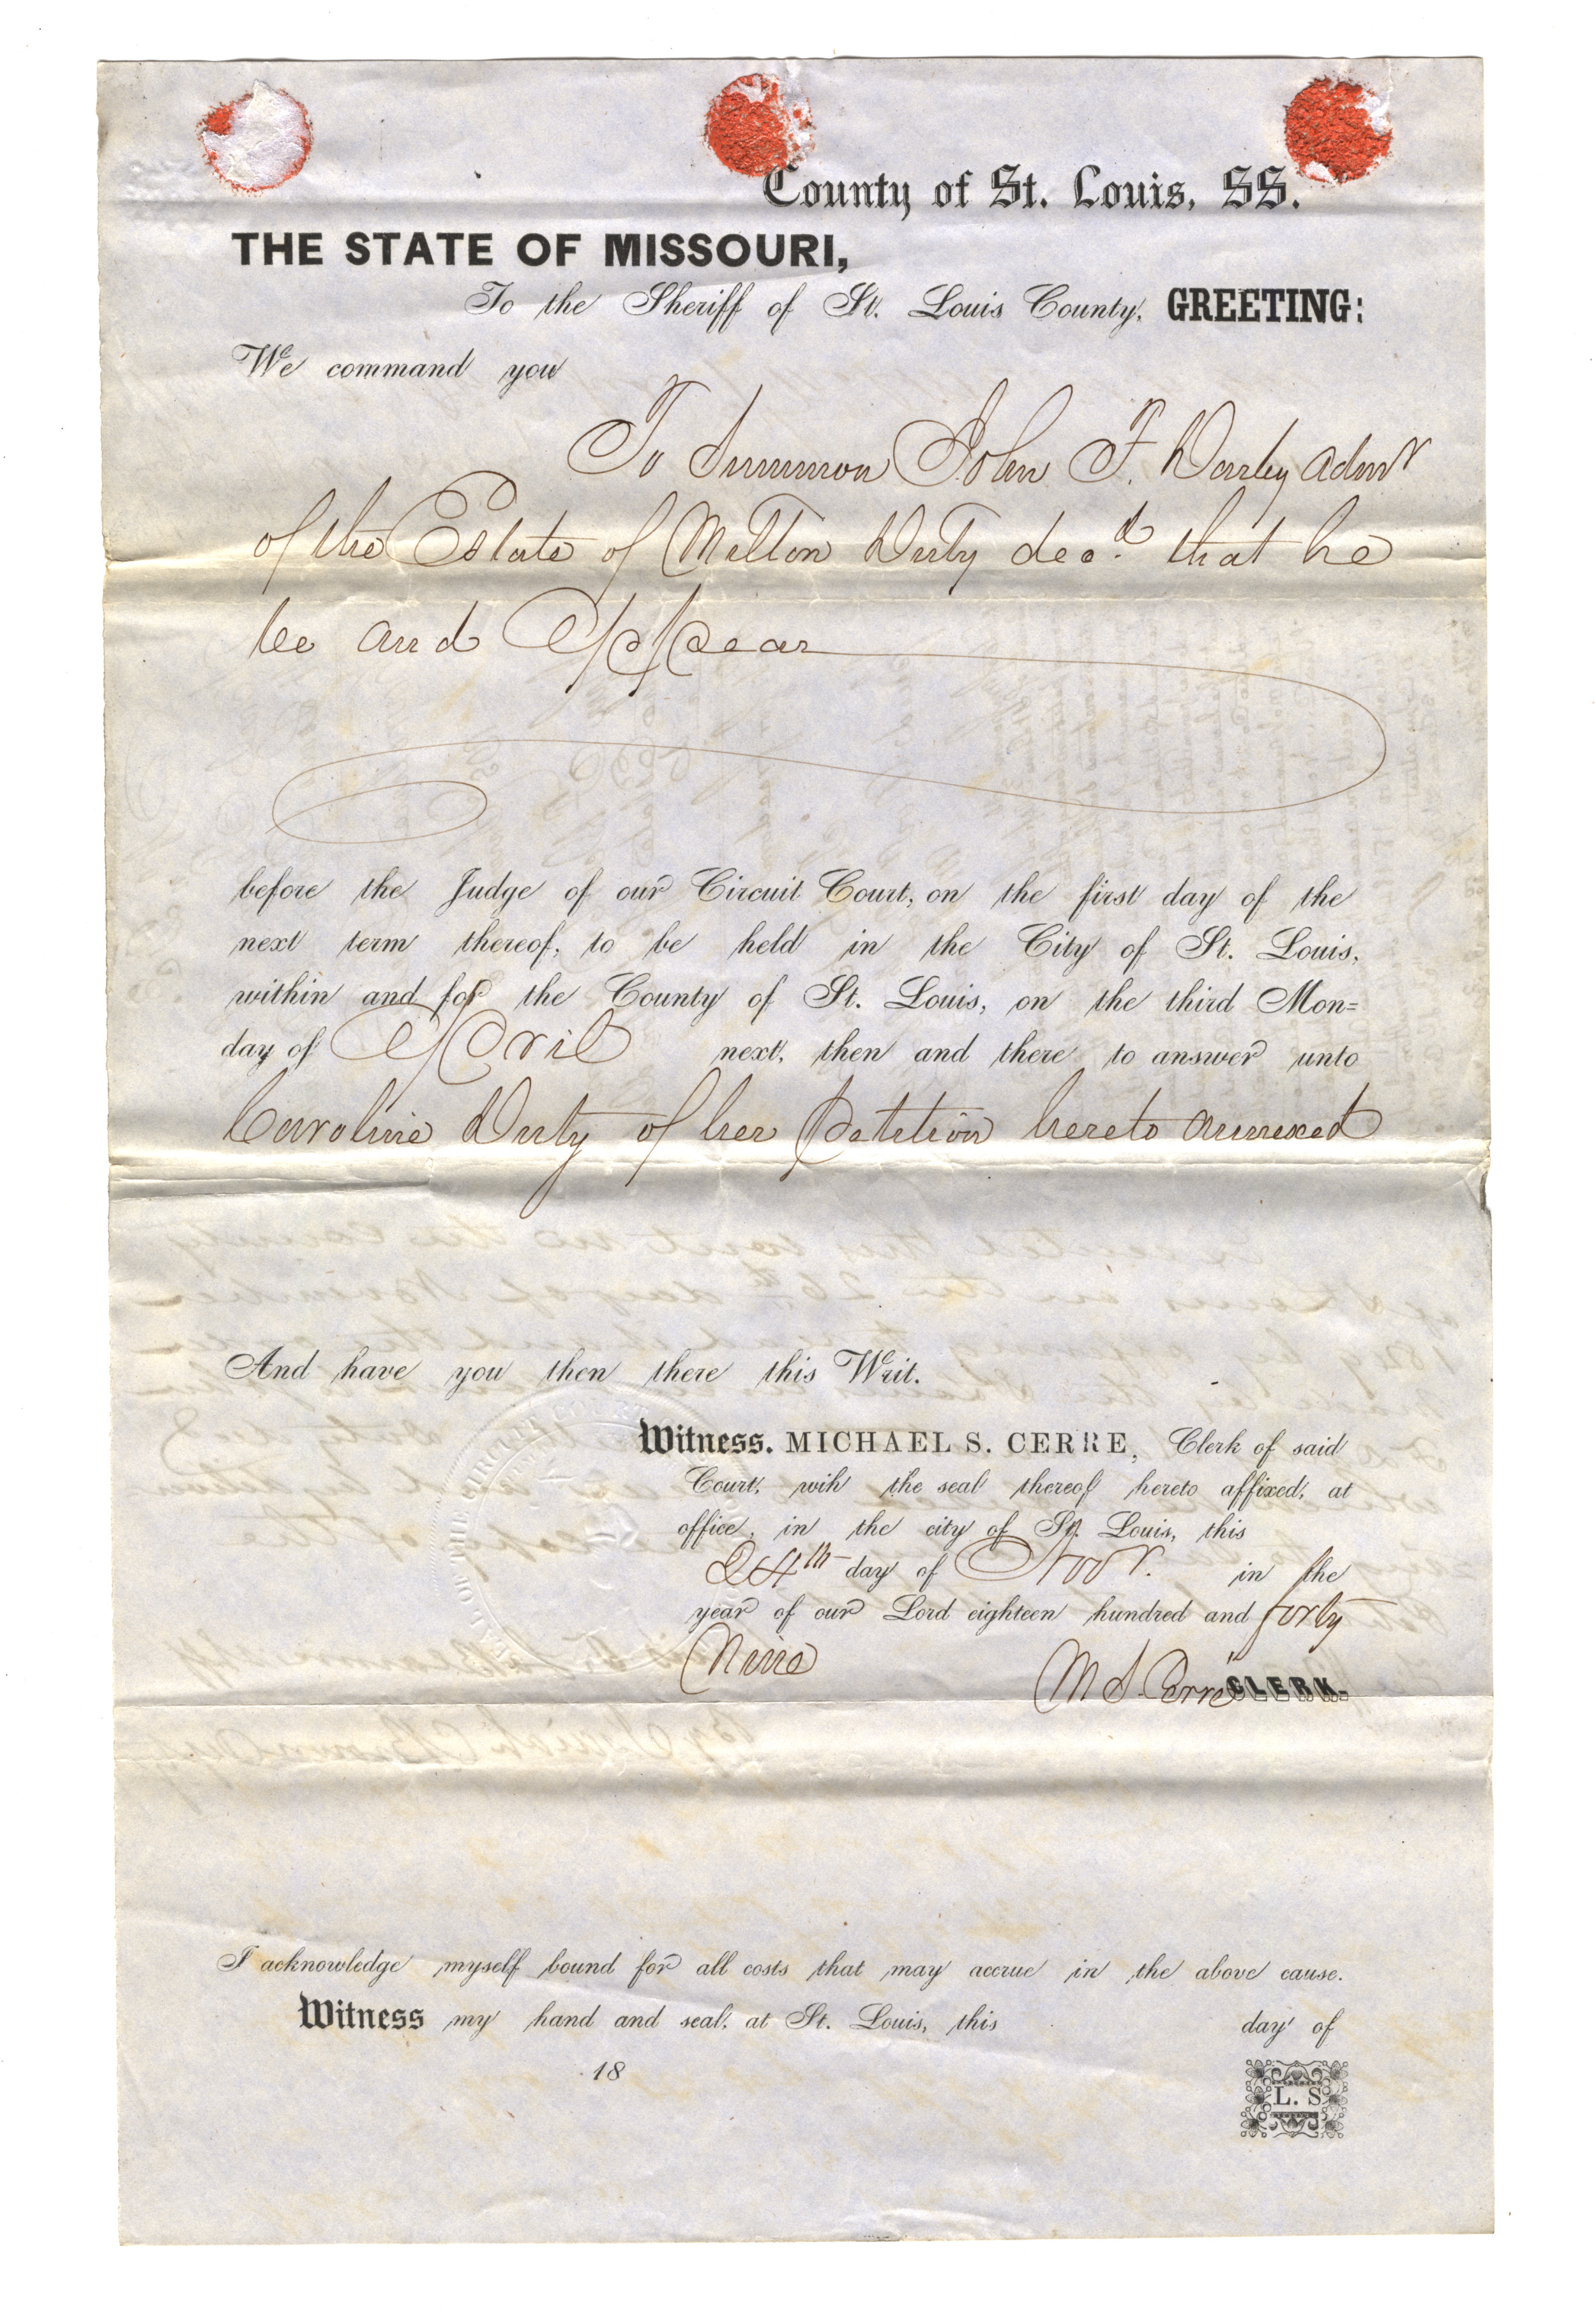 County of St. Louis, SS.
THE STATE OF MISSOURI,
To the Sheriff of St. Louis County, GREETING:
We command you
To Summon John F. Darby admr
of the Estate of Milton Duty decd. that he
be and Appear
before the Judge of our Circuit Court, on the first day of the
next term thereof, to be held in the City of St. Louis,
within and for the County of St. Louis, on the third Mon=
day of April next, then and there to answer unto
Caroline Duty of her Petition hereto annexed
And have you then there this Writ.
Witness, MICHAEL S. CERRE, Clerk of said
Court, wih the seal thereof hereto affixed, at
office, in the city of St. Louis, this
24th day of Novr. in the
year of our Lord eighteen hundred and forty
Nine
M S. Cerré CLERK.
I acknowledge myself bound for all costs that may accrue in the above cause.
Witness my hand and seal, at St. Louis, this day of
18
L. S